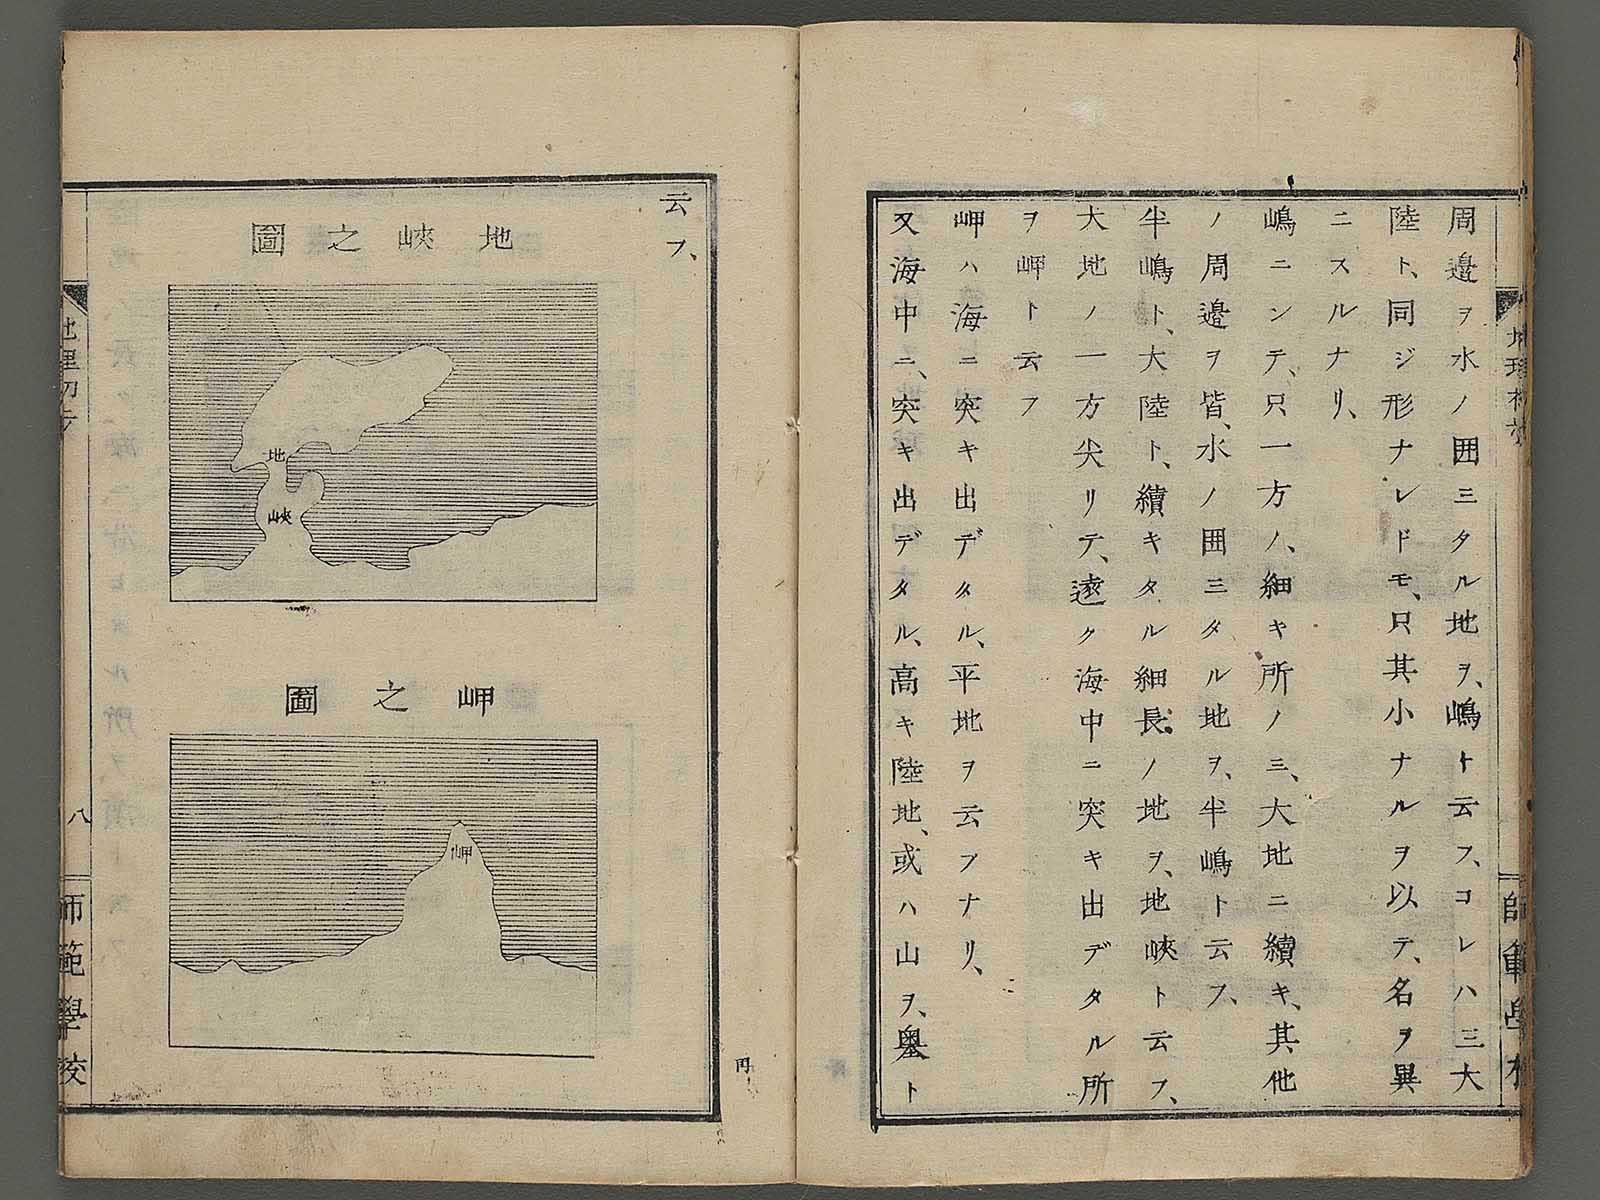 周邊ヲ水ノ囲ミタル地ヲ、嶋ト云フ、コレハ三大
陸ト、同ジ形ナレドモ、只其小ナルヲ以テ、名ヲ異
ニスルナリ、
嶋ニシテ、只一方ノ、細キ所ノミ、大地ニ續キ、其他
ノ周邊ヲ皆、水ノ囲ミタル地ヲ、半嶋ト云フ、
半嶋ト、大陸ト、續キタル細長ノ地ヲ、地峡ト云フ、
大地ノ一方尖リテ、遠ク海中ニ突キ出デタル所
ヲ岬ト云フ
岬ハ海ニ突キ出デタル、平地ヲ云フナリ、
又海中ニ、突キ出デタル、高キ陸地、或ハ山ヲ、ト
云フ、
地峽之圖
地峽
岬之圖
岬
地理初歩
八
師範學校